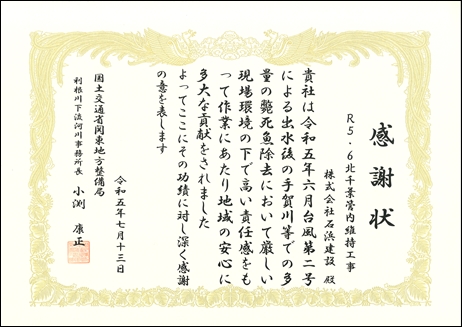 感謝状
R5・6北千葉管内維持工事
株式会社石浜建設 殿
貴社は令和五年六月台風第二号
による出水後の手賀川等での多
量の斃死魚除去において厳しい
現場環境の下で高い責任感をも
って作業にあたり地域の安心に
多大な貢献をされました
よってここにその功績に対し深く感謝
の意を表します
令和五年七月十三日
国土交通省関東地方整備局
利根川下流河川事務所長 小渕 康正